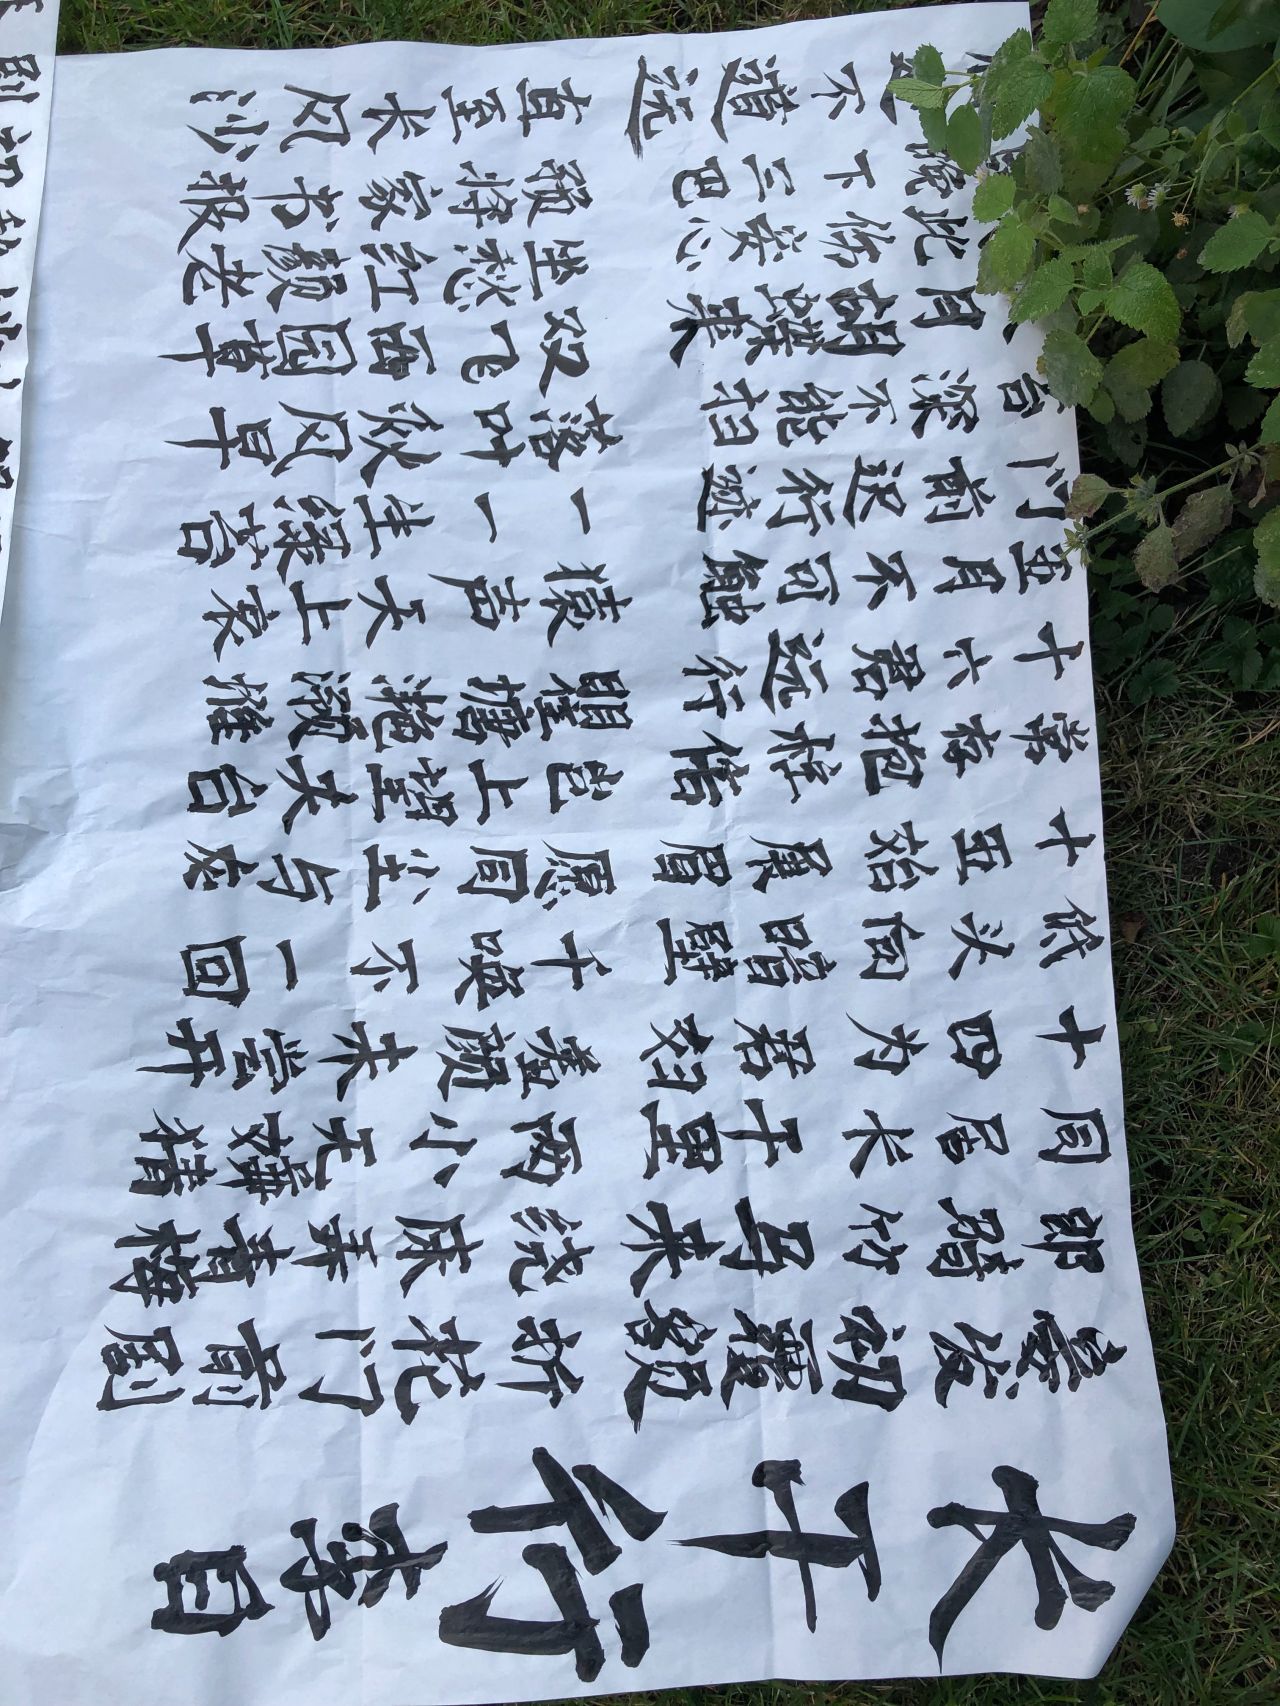 长干行 李白
妾发初覆额 折花门前剧
郎骑竹马来 绕床弄青梅
同居长干里 两小无嫌猜
十四为君妇 羞颜未尝开
低头向暗壁 千唤不一回
十五始展眉 愿同尘与灰
常存抱柱信 岂上望夫台
十六君远行 瞿塘滟滪堆
五月不可触 猿声天上哀
门前迟行迹 一一生绿苔
苔深不能扫 落叶秋风早
月胡蝶来 双飞西园草
此伤妾心 坐愁红颜老
晚下三巴 预将家书报
不道远 直至长风沙